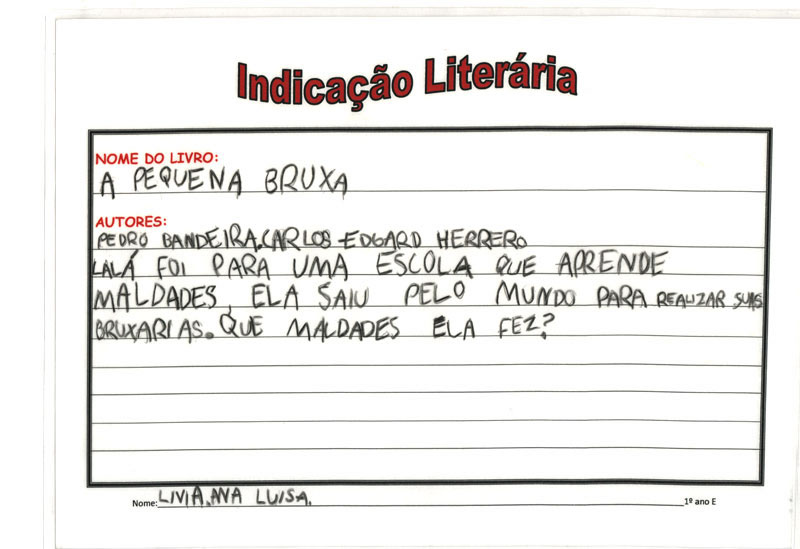 Indicação Literária
NOME DO LIVRO:
A PEQUENA BRUXA
AUTORES:
PEDRO BANDEIRA,CARLOS EDGARD HERRERO
LALÁ FOI PARA UMA ESCOLA QUE APRENDE
MALDADES, ELA SAIU PELO MUNDO PARA REALIZAR SUAS
BRUXARIAS. QUE MALDADES ELA FEZ?
Nome: LIVIA, ANA LUISA. 1º ano E